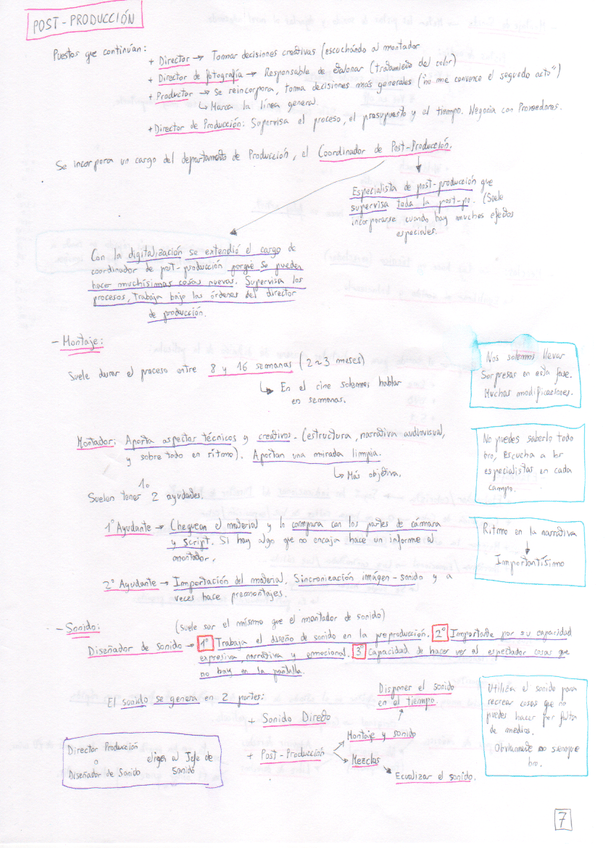 POST-PRODUCCIÓN
Puestos que continúan:
+ Director → Toomar decisiones creativas (escuchando al montador
+ Director de fotografía → Responsable de Etalonar (tratamiento del color)
+ Productor → Se reincorpora, toma decisiones más generales ("no me convence el segundo acto")
↳ Marca la línea general.
+ Director de Producción: Supervisa el proceso, el presupuesto y el tiempo. Negocia con Proveedores.
Se incorpora un cargo del departamento de Producción, el Coordinador de Post-Producción.
Especialista de post-producción que
supervisa toda la post-po. (Suele
incorporarse cuando hay muchos efectos
especiales.
Con la digitalización se extendió el cargo de
coordinador de post-producción porque se pueden
hacer muchísimas cosas nuevas. Supervisa los
procesos, trabaja bajo las órdenes del director
de producción.
- Montaje:
Suele durar el proceso entre 8 y 16 semanas (2~3 meses)
↳ En el cine solemos hablar
en semanas.
Nos solemos llevar
sorpresas en esta fase.
Muchas modificaciones.
Montador: Aporta aspectos técnicos y creativos. (estructura, narrativa audiovisual,
y sobre todo en ritmo). Aportan una mirada limpia.
↳ Más objetiva.
No puedes saberlo todo
bro, Escucha a los
especialistas en cada
campo.
1 o
Suelen tener 2 ayudantes.
1º Ayudante → Chequean el material y lo compara con los partes de cámara
y script. Si hay algo que no encaja hace un informe al
montador.
2º Ayudante → Importación del material. Sincronización imágen-sonido y a
veces hace premontajes.
Ritmo en la narrativa
↓
Importantísimo
- Sonido: (suele ser el mismo que el montador de sonido)
Diseñador de sonido → 1º Trabaja el diseño de sonido en la preproducción. 2º Importante por su capacidad
expresiva, narrativa y emocional. 3º Capacidad de hacer ver al espectador cosas que
no hay en la pantalla.
El sonido se genera en 2 partes:
+ Sonido Directo
+ Post-Producción
Disponer el sonido
en el tiempo.
Montaje y sonido
Mezclas
Ecualizar el sonido.
Utiliza el sonido para
recrear cosas que no
puedes hacer por falta
de medios.
Obviamente no siempre
bro.
Director Producción
o
Diseñador de Sonido
eligen al Jefe de
Sonido
7